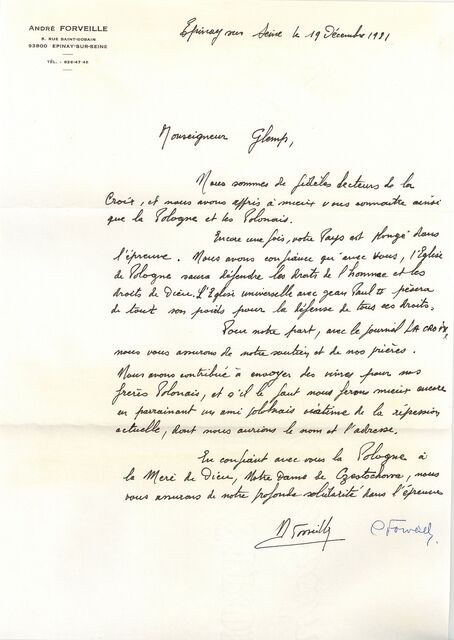 ANDRÉ FORVEILLE
5, RUE SAINT-GOBAIN
93800 EPINAY-SUR-SEINE
TÉL. : 826-47-45
Epinay sur Seine le 19 Décembre 1981
Monseigneur Glemp,
Nous sommes de fidèles lecteurs de la
Croix, et nous avons appris à mieux vous connaître ainsi
que la Pologne et les Polonais.
Encore une fois, votre Pays est plongé dans
l'épreuve. Nous avons confiance qu'avec vous, l'Eglise
de Pologne saura défendre les droits de l'homme et les
droits de Dieu. L'Eglise universelle avec jean Paul II pèsera
de tout son poids pour la défense de tous ces droits.
Pour notre part, avec le journal LA CROIX,
nous vous assurons de notre soutien et de nos prières.
Nous avons contribué à envoyer des vivres pour nos
frères Polonais, et s'il le faut nous ferons mieux encore
en parrainant un ami polonais victime de la répression
actuelle, dont nous aurions le nom et l'adresse.
En confiant avec vous la Pologne à
la Mère de Dieu, Notre Dame de Czestochowa, nous
vous assurons de notre profonde solidarité dans l'épreuve
A Forveille C Forveille